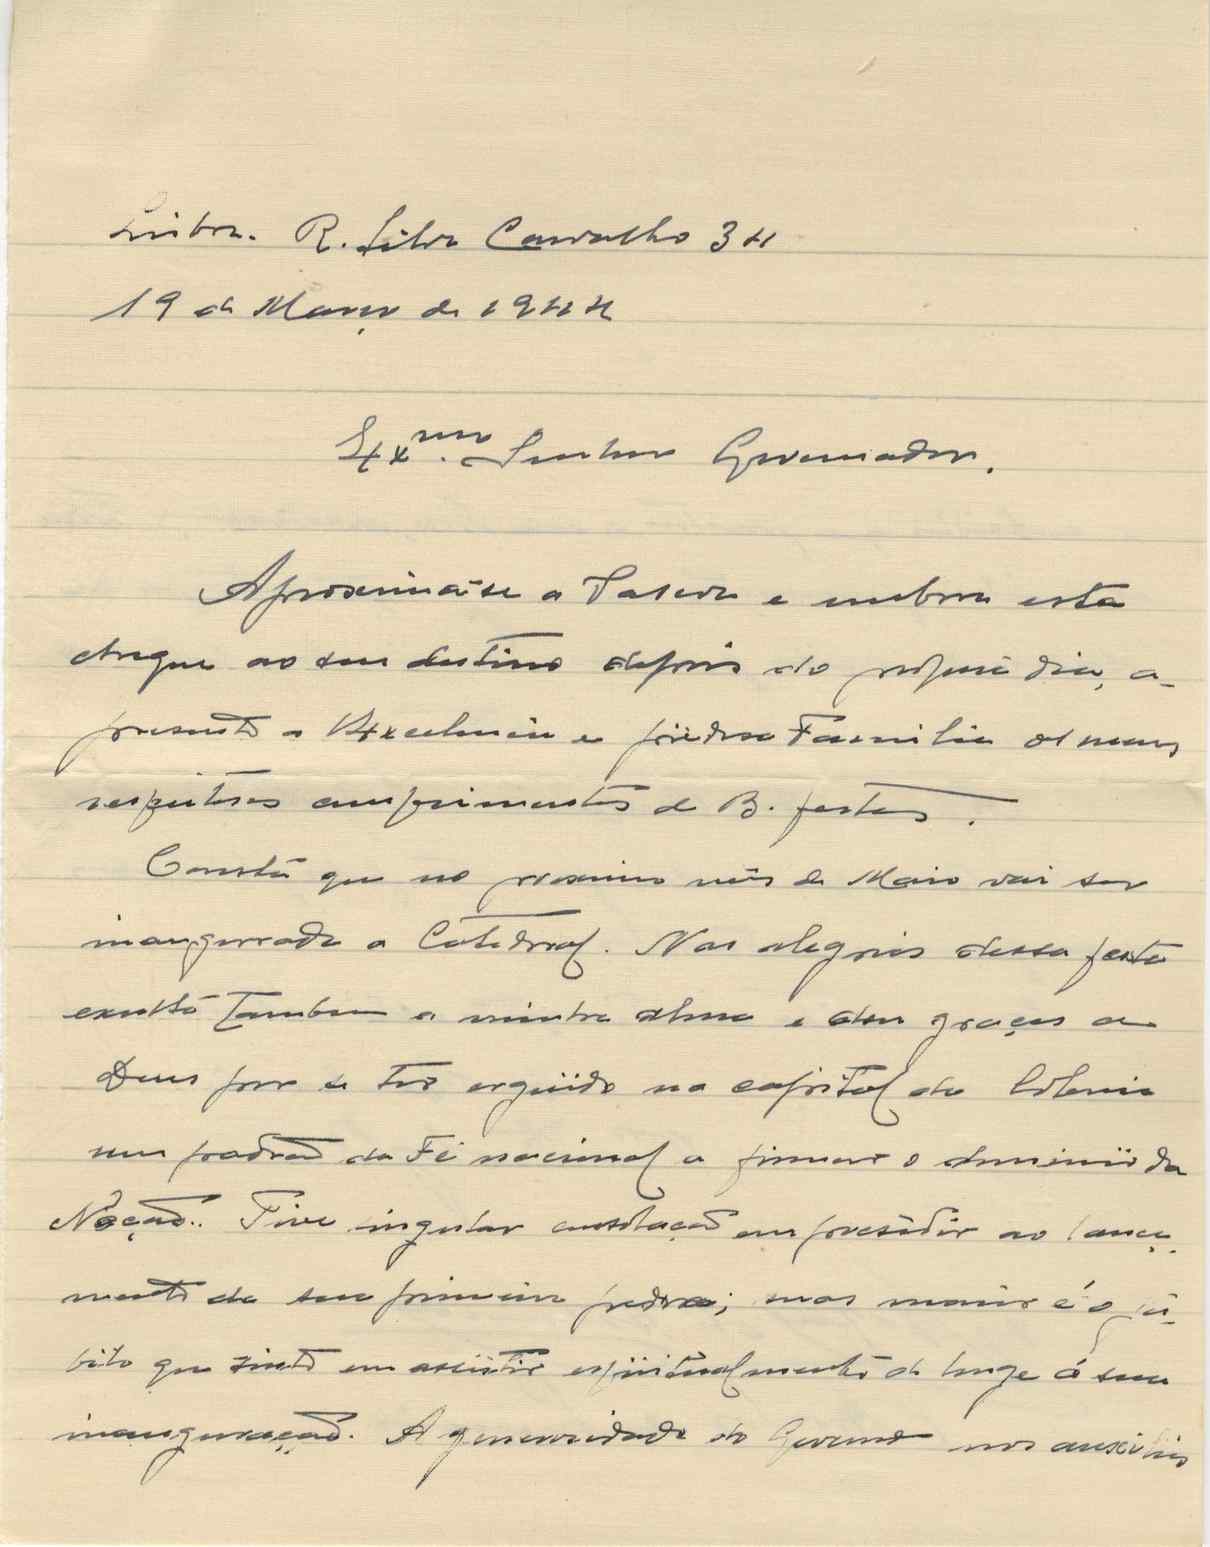 Lisboa. R. Silva Carvalho 34
19 de Março de 1944
Exmo. Senhor Governador.
Aproxima-se a Pascoa e embora esta
chegue ao seu destino depois do proprio dia, a-
presento a V. Excelencia e piedosa Familia os meus
respeitosos cumprimentos de B. festas.
Consta que no proximo mês de Maio vai ser
inaugurada a Catedral. Nas alegrias dessa festa
exulta tambem a minha alma e dou graças a
Deus por se ter erguido na capital da Colonia
um padrão da Fé nacional a firmar o dominio da
Nação. Tive singular consolação em presidir ao lança-
mento da sua primeira pedra; mas maior é o jú-
bilo que sinto em assistir espiritualmente de longe á sua
inauguração. A generosidade do Governo nos auxilios